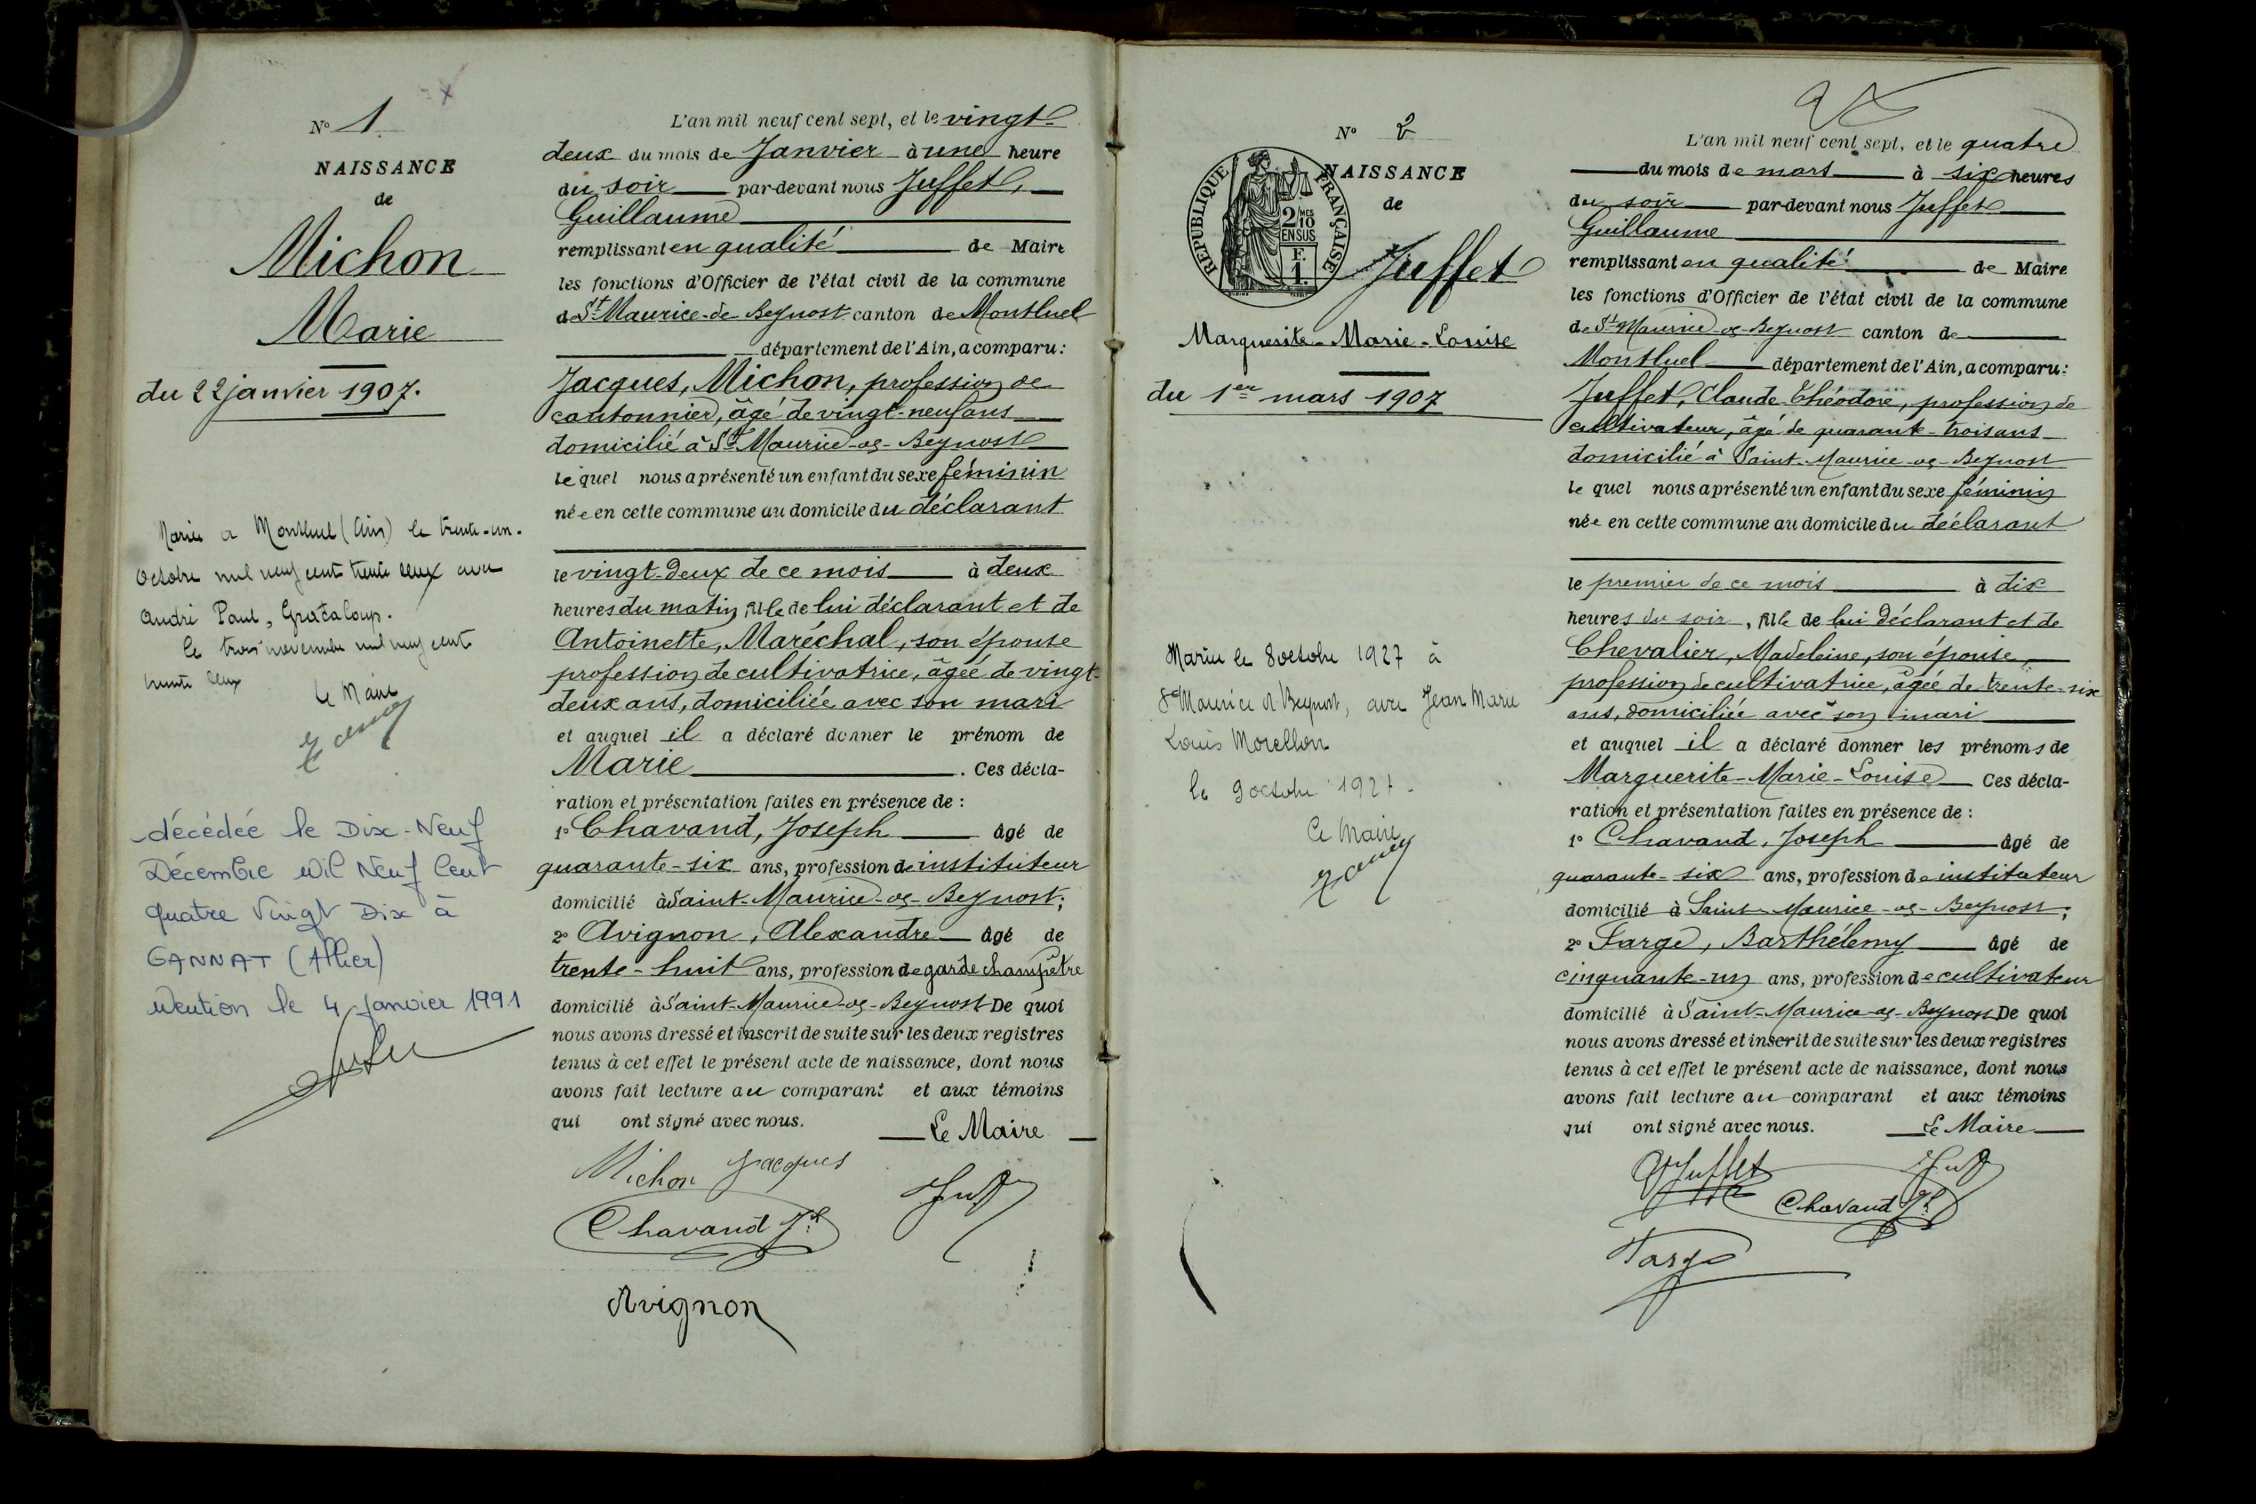 N° 1
NAISSANCE
de
Michon
Marie
du 22 janvier 1907.
Mariée a Montluel (Ain) le trente-un.
Octobre mil neuf cent trente deux avec
André Paul, Grataloup.
le trois novembre mil neuf cent
trente deux
Le Maire
décédée le Dix-Neuf
Décembre Mil Neuf Cent
quatre Vingt Dix à
GANNAT (Allier)
Mention le 4 Janvier 1991
L'an mil neuf cent sept, et le vingt-
deux du mois de Janvier à une heure
du soir par-devant nous Juffet,
Guillaume
remplissant en qualité de Maire
les fonctions d'Officier de l'état civil de la commune
de St Maurice-de Beynost canton de Montluel
département de l'Ain, a comparu:
Jacques, Michon, profession de
cantonnier, âgé de vingt-neuf ans
domicilié à St Maurice-de-Beynost
lequel nous a présenté un enfant du sexe féminin
née en cette commune au domicile du déclarant
le vingt-deux de ce mois à deux
heures du matin, fille de lui déclarant et de
Antoinette, Maréchal, son épouse
profession de cultivatrice, âgée de vingt-
deux ans, domiciliée avec son mari
et auquel il a déclaré donner le prénom de
Marie. Ces décla-
ration et présentation faites en présence de :
1° Chavand, Joseph âgé de
quarante-six ans, profession de instituteur
domicilié à Saint-Maurice-de-Beynost;
2° Avignon, Alexandre âgé de
trente-huit ans, profession de garde champêtre
domicilié à Saint-Maurice-de-Beynost De quoi
nous avons dressé et inscrit de suite sur les deux registres
tenus à cet effet le présent acte de naissance, dont nous
avons fait lecture au comparant et aux témoins
qui ont signé avec nous.
Le Maire
Michon Jacques
Chavand Jh
Avignon
N° 2
NAISSANCE
de
REPUBLIQUE FRANÇAISE
2/MES 10
EN SUS
F.
1.
Juffet
Marguerite-Marie-Louise
du 1er mars 1907
Mariée le 8 octobre 1927 à
St Maurice de Beynost, avec Jean Marie
Louis Morellon
le 9 octobre 1927.
Le Maire
L'an mil neuf cent sept, et le quatre
du mois de mars à six heures
du soir par-devant nous Juffet
Guillaume
remplissant en qualité de Maire
les fonctions d'Officier de l'état civil de la commune
de St-Maurice-de-Beynost canton de
Montluel département de l'Ain, a comparu:
Juffet, Claude-Théodore, profession de
cultivateur, âgé de quarante-trois ans
domicilié à Saint-Maurice-de-Beynost
lequel nous a présenté un enfant du sexe féminin
née en cette commune au domicile du déclarant
le premier de ce mois à dix
heures du soir, fille de lui déclarant et de
Chevalier, Madeleine, son épouse,
profession de cultivatrice, âgée de trente-six
ans, domiciliée avec son mari
et auquel il a déclaré donner les prénoms de
Marguerite-Marie-Louise Ces décla-
ration et présentation faites en présence de :
1° Chavand, Joseph âgé de
quarante-six ans, profession de instituteur
domicilié à Saint-Maurice-de-Beynost;
2° Farge, Barthélemy âgé de
cinquante-un ans, profession de cultivateur
domicilié à Saint-Maurice-de-Beynost De quoi
nous avons dressé et inscrit de suite sur les deux registres
tenus à cet effet le présent acte de naissance, dont nous
avons fait lecture au comparant et aux témoins
qui ont signé avec nous.
Le Maire
Juffet
Chavand Jh
Farge